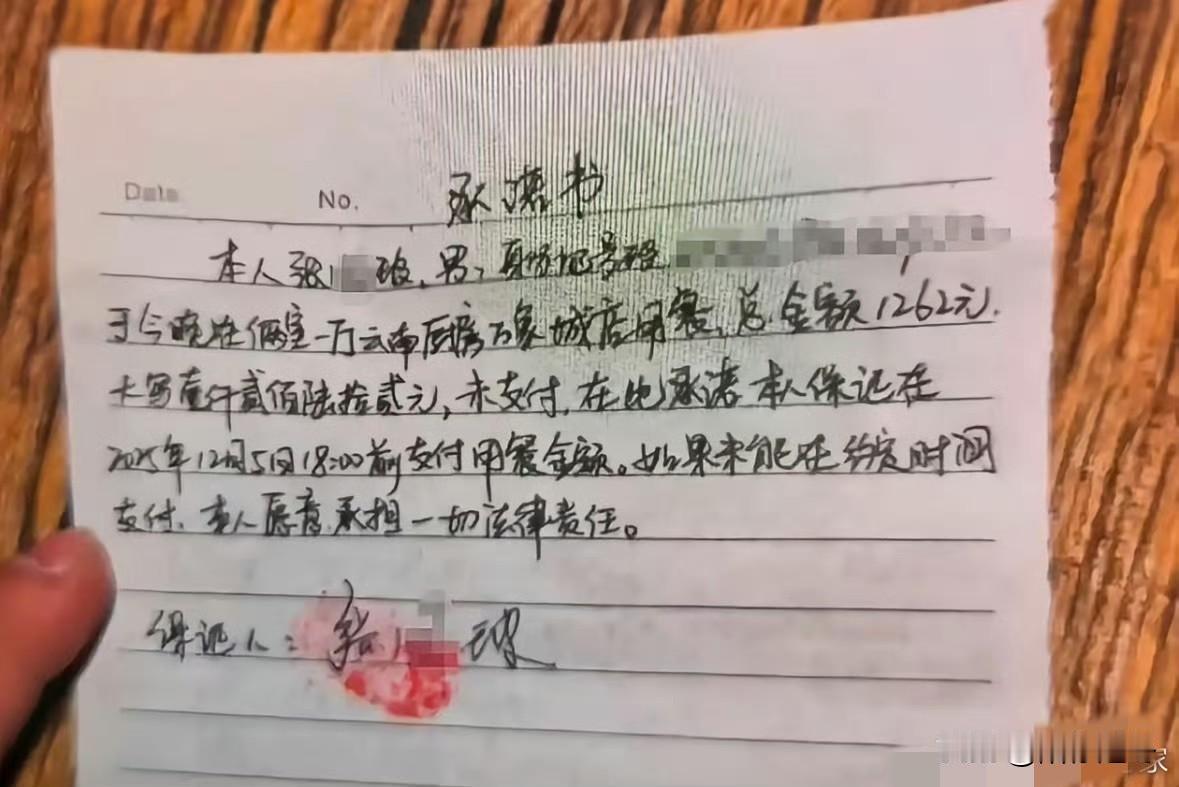 Date No. 承诺书
本人张玻,男,身份证号码
于今晚在俩宝一厅云南厨房万象城店用餐,总金额1262元.
大写壹仟贰佰陆拾贰元,未支付,在此承诺本人保证在
2025年12月5日18:00前支付用餐金额。如果未能在约定时间
支付,本人愿意承担一切法律责任。
保证人:张玻
家